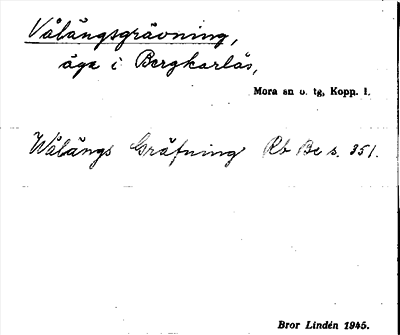 Vålängsgrävning,
äga i Bergkarlås,
Mora sn o. tg, Kopp. l.
Wålängs Gräfning Rb Be s. 351.
Bror Lindén 1945.